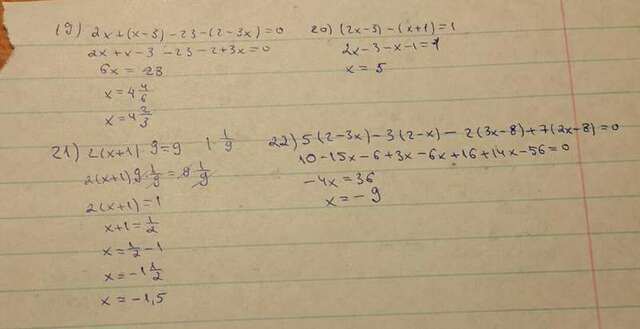 19) 2x+(x-3)-23-(2-3x)=0
2x+x-3-23-2+3x=0
6x=28
x=4 4/6
x=4 2/3
20) (2x-3)-(x+1)=1
2x-3-x-1=1
x=5
21) 2(x+1) · 9=9 | 1/9
2(x+1)9 · 1/9=9 · 1/9
2(x+1)=1
x+1=1/2
x=1/2-1
x=-1 1/2
x=-1,5
22) 5(2-3x)-3(2-x)-2(3x-8)+7(2x-8)=0
10-15x-6+3x-6x+16+14x-56=0
-4x=36
x=-9